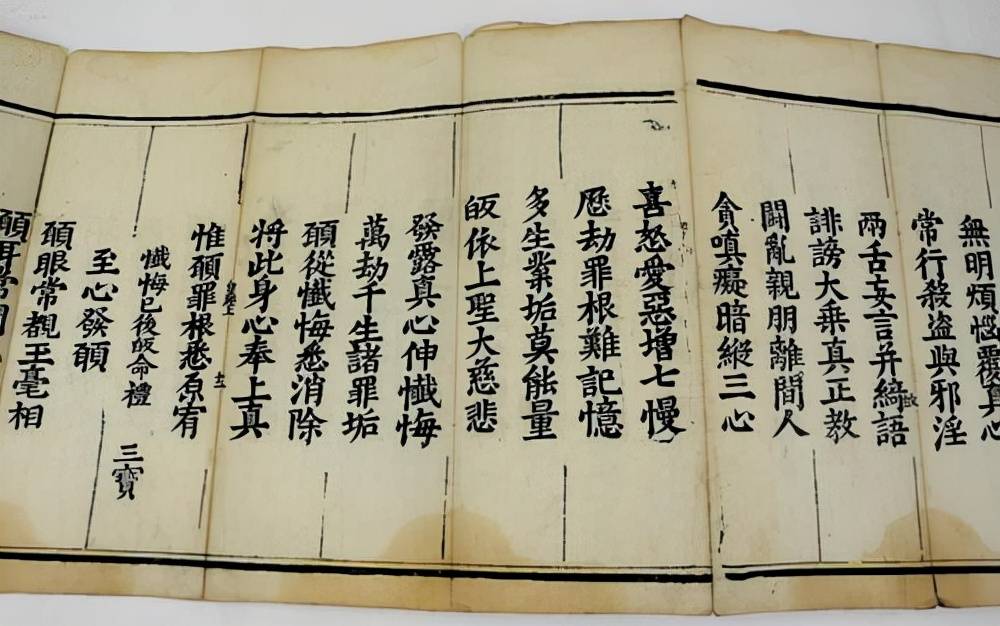 無明煩惱覆真心
常行殺盜與邪淫
兩舌妄言并綺語
誹謗大乗真正教
鬪亂親朋離間人
貪嗔癡暗縱三心
喜怒愛惡增七慢
歷劫罪根難記憶
多生業垢莫能量
皈依上聖大慈悲
發露真心伸懺悔
萬劫千生諸罪垢
願從懺悔悉消除
將此身心奉上真
惟願罪根悉原宥
懺悔已後皈命禮
三寶
至心發願
願眼常覩玉毫相
願耳常聞